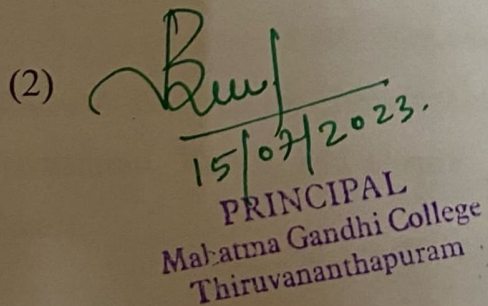 (2)
15/07/2023.
PRINCIPAL
Mahatma Gandhi College
Thiruvananthapuram